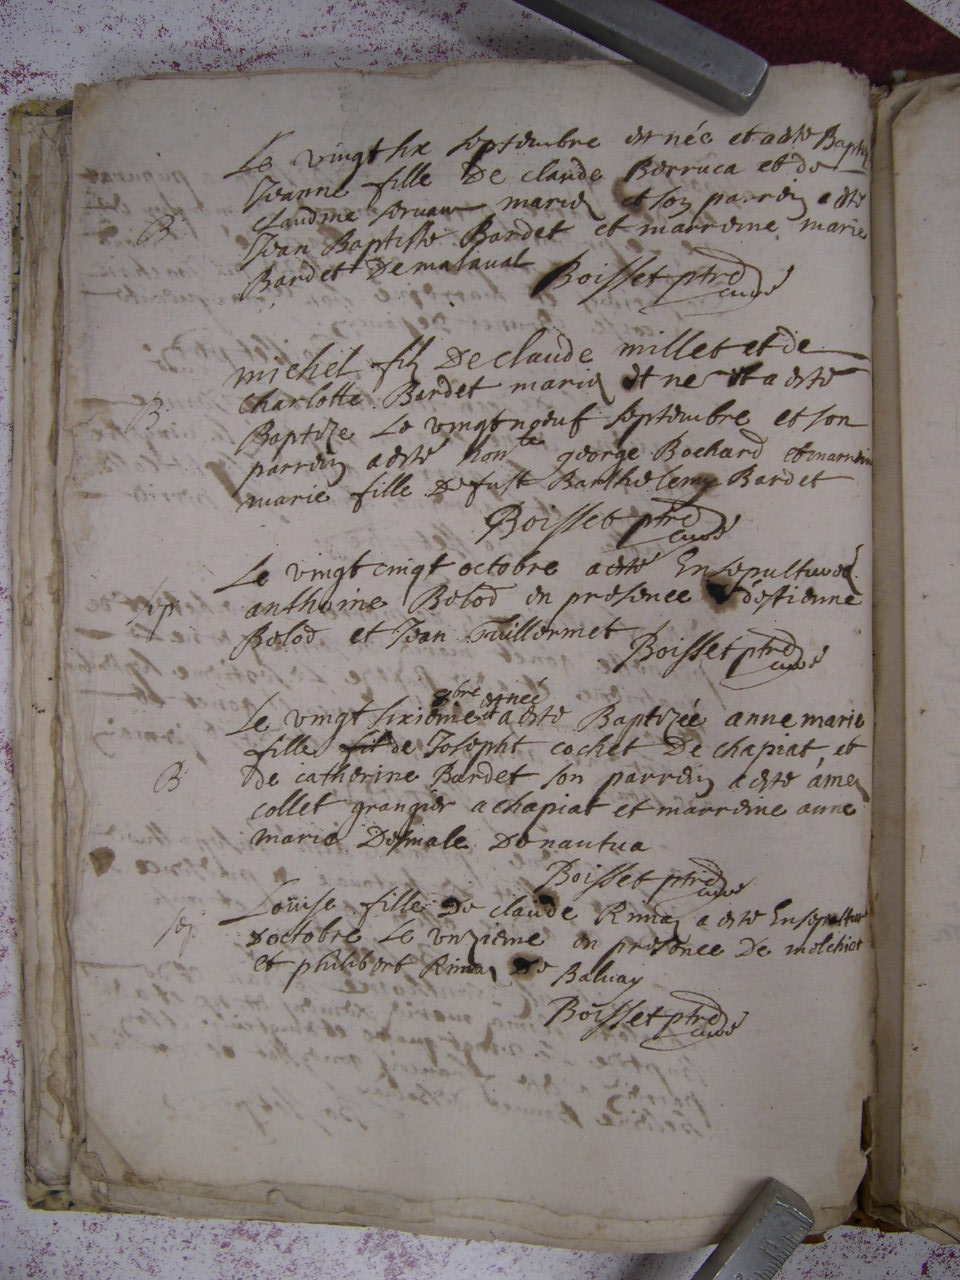 Le vingt six septembre est née et a esté Baptizé
Jeanne fille De claude Berruca et de
claudine servan mariez et son parrein a esté
B Jean Baptiste Bardet et marreine marie
Bardet De malaval Boisset ptre
curé
michel filz De claude millet et de
charlotte Bardet mariez est ne et a esté
B Baptize Le vingt neuf septembre et son
parrein a esté hon ble george Bochard et marreine
marie fille De fust Barthelemy Bardet
Boisset ptre
curé
Le vingt cinqt octobre a esté Ensepulturé
sep anthoine Bolod en presence d'estienne
Bolod et Jean Guillermet Boisset ptre
curé
8bre est neé
Le vingt sixiéme et a esté Baptizée anne marie
fille de Josepht cochet De chapiat et
B de catherine Bardet son parrein a esté amé
collet grangier a chapiat et marreine anne
marie Demale De nantua
Boisset ptre
curé
Louïse fille De claude Rimaz a esté Ensepultur
sep 8octobre Le unzieme en presence De melchiot
et philibert Rimaz De Balvay
Boisset ptre
curé